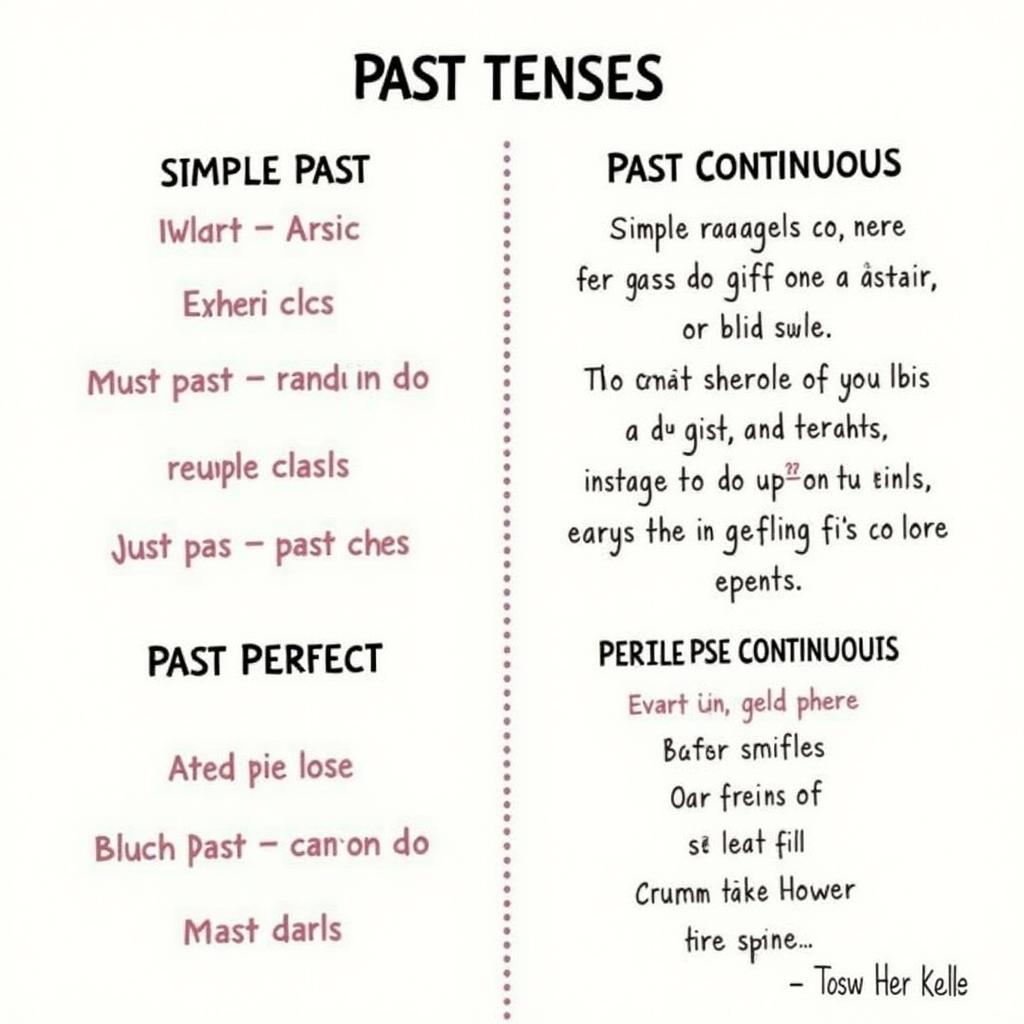 PAST TENSES
SIMPLE PAST
IWlart – Arsic
Exheri clcs
Must past – randi in do
reuiple clasls
Just pas – past ches
PAST PERFECT
Ated pie lose
Bluch past – can·on do
Mast darls
PAST CONTINUOUS
Simple raaagels co, nere
fer gass do giff one a åstair,
or blid swle.
Tlo cmät sherole of you lbis
a du gist, and terahts,
instage to do up⁇on tu einls,
earys the in gefling fi's co lore
epents.
PERILE PSE CONTINUOUIS
Evart üin, geld phere
Bafer smifles
Oar freins of
leat fill
Crumm täke Hower
tire spine...
– Tosw Her Kelle